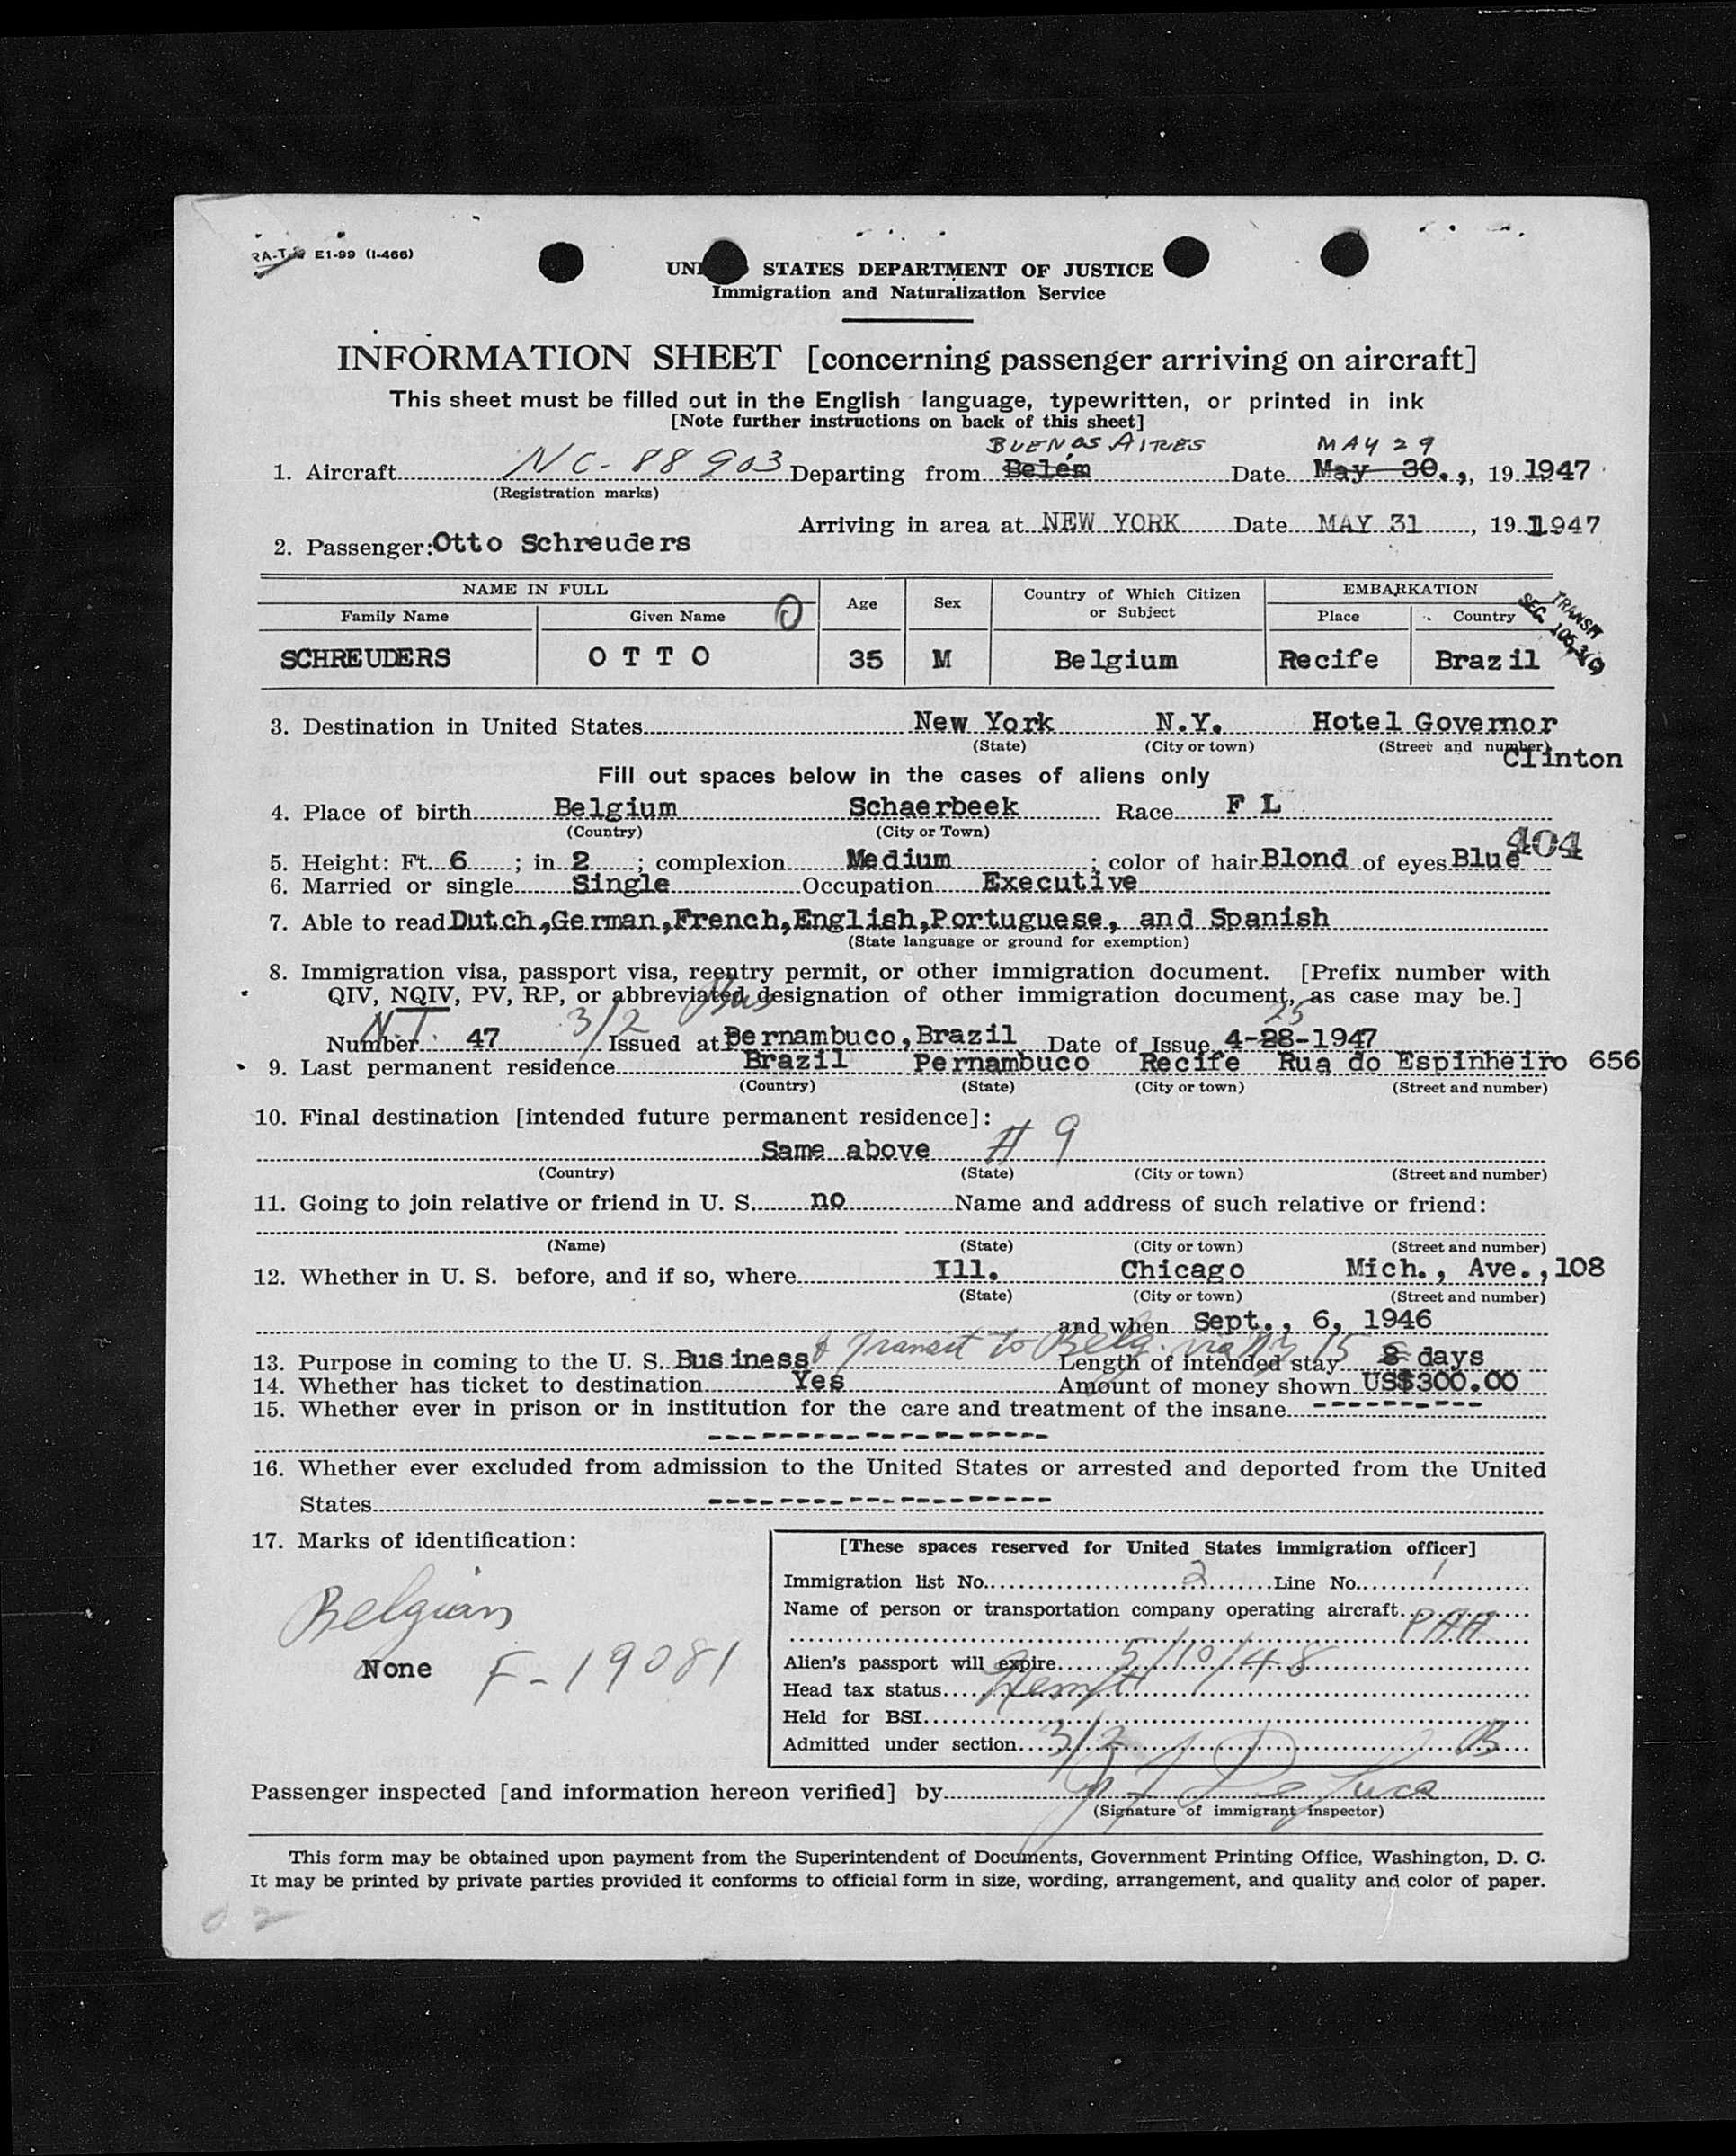 E1-99 (1-466)
STATES DEPARTMENT OF JUSTICE
Immigration and Naturalization Service
INFORMATION SHEET [concerning passenger arriving on aircraft]
This sheet must be filled out in the English language, typewritten, or printed in ink
[Note further instructions on back of this sheet]
BUENOS AIRES MAY 29
1. Aircraft NC-88903 Departing from Belém Date May 30., 19 1947
(Registration marks)
Arriving in area at NEW YORK Date MAY 31, 19 1947
2. Passenger: Otto Schreuders
NAME IN FULL Age Sex Country of Which Citizen or Subject EMBARKATION
Family Name Given Name O Place Country
TRANSIT
SEC. 105.3(c)
SCHREUDERS O T T O 35 M Belgium Recife Brazil
3. Destination in United States New York N.Y. Hotel Governor
(State) (City or town) (Street and number)
Clinton
Fill out spaces below in the cases of aliens only
4. Place of birth Belgium Schaerbeek Race F L
(Country) (City or Town)
404
5. Height: Ft. 6; in 2; complexion Medium; color of hair Blond of eyes Blue
6. Married or single Single Occupation Executive
7. Able to read Dutch,German,French,English,Portuguese, and Spanish
(State language or ground for exemption)
8. Immigration visa, passport visa, reentry permit, or other immigration document. [Prefix number with
QIV, NQIV, PV, RP, or abbreviated designation of other immigration document, as case may be.]
3/2 Bus 25
Number 47 Issued at Pernambuco, Brazil Date of Issue 4-28-1947
9. Last permanent residence Brazil Pernambuco Recife Rua do Espinheiro 656
(Country) (State) (City or town) (Street and number)
10. Final destination [intended future permanent residece]:
Same above # 9
(Country) (State) (City or town) (Street and number)
11. Going to join relative or friend in U. S. no Name and address of such relative or friend:
(Name) (State) (City or town) (Street and number)
12. Whether in U. S. before, and if so, where Ill. Chicago Mich., Ave.,108
(State) (City or town) (Street and number)
and when Sept., 6, 1946
& Transit to Belg. via NY 15
13. Purpose in coming to the U. S. Business Length of intended stay 8 days
14. Whether has ticket to destination Yes Amount of money shown US$300.00
15. Whether ever in prison or in institution for the care and treatment of the insane ----------
--------------------
16. Whether ever excluded from admission to the United States or arrested and deported from the United
States --------------------
17. Marks of identification:
Belgian
None F-19081
[These spaces reserved for United States immigration officer]
Immigration list No. 2 Line No. 1
Name of person or transportation company operating aircraft PAA
Alien's passport will expire 5/10/48
Head tax status
Held for BSI
Admitted under section 3/2 B
Passenger inspected [and information hereon verified] by De Luca
(Signature of immigrant inspector)
This form may be obtained upon payment from the Superintendent of Documents, Government Printing Office, Washington, D. C.
It may be printed by private parties provided it conforms to official form in size, wording, arrangement, and quality and color of paper.